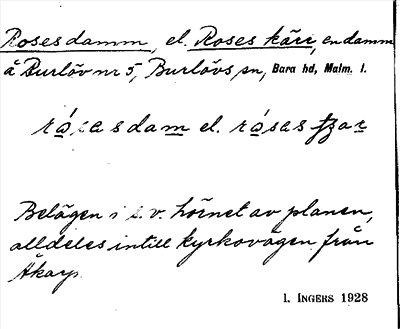 Rosesdamm, el. Roses kärr, en damm
å Burlöv nr 5, Burlövs sn, Bara hd, Malm. l.
el.
Belägen i s. v. hörnet av planen,
alldeles intill kyrkovägen från
Åkarp.
I. INGERS 1928